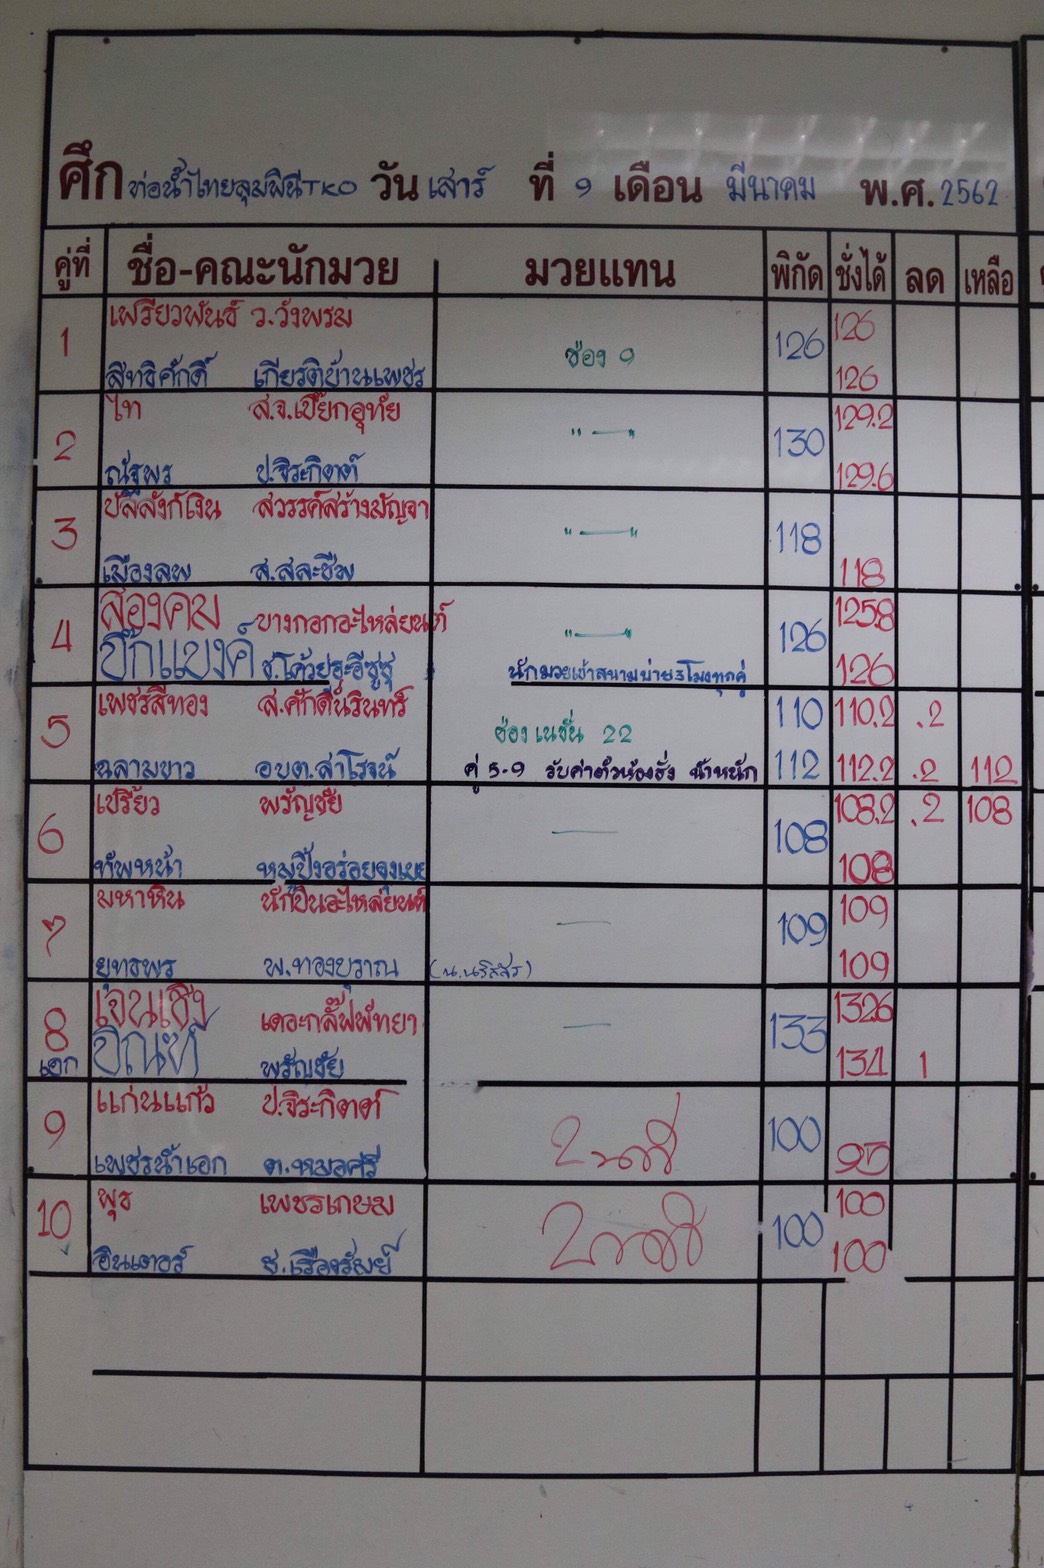 ศึกท่อน้ำไทยลุมพินีTKO วันเสาร์ ที่ 9 เดือน มีนาคม พ.ศ.2562
คู่ที่ ชื่อ-คณะนักมวย มวยแทน พิกัด ชั่งได้ ลด เหลือ
เฟรียวพันธ์ ว.วังพรม 126
1 ช่อง 9 126
สิทธิศักดิ์ เกียรติบ้านเพชร 126
ไท ส.จ.เปี๊ยกอุทัย 129.2
2 " — " 130
ณัฐพร ป.จิระกิตต์ 129.6
บัลลังก์เงิน สวรรค์สร้างมัญจา
3 " — " 118
เมืองลพ ส.สละชีพ 118
สองคม บางกอกอะไหล่ยนต์ 125.8
4 " — " 126
บิ๊กแบงค์ 126
นักมวยเข้าสนามบ่าย3โมงทุกคู่
เพชรสีทอง ส.ศักดิ์นรินทร์ 110 110.2 .2
5 ช่อง เนชั่น 22
ฉลามขาว อบต.สำโรงน์ คู่ 5-9 รับค่าตั๋วห้องชั่ง น้ำหนัก 112 112.2 .2 112
เปรี้ยว พรัญชัย 108.2 .2 108
6 — 108
ทัพหน้า หมูปิ้งอร่อยจุงเบย 108
มหาหิน นักบินอะไหล่ยนต์ 109
7 — 109
ยุทธพร พ.ทองบุราณ (น.นริสสร) 109
เจนเชิง เดอะกลั๊ฟพัทยา 132.6
8 — 133
เอก พรัญชัย 134 1
แก่นแก้ว ป.จิระกิตต์
9 100
เพชรน้ำเอก ต.หมอศรี 95
พุธ เพชรเกษม 100
10 100
อินเตอร์ ช.เรืองรัมย์ 100